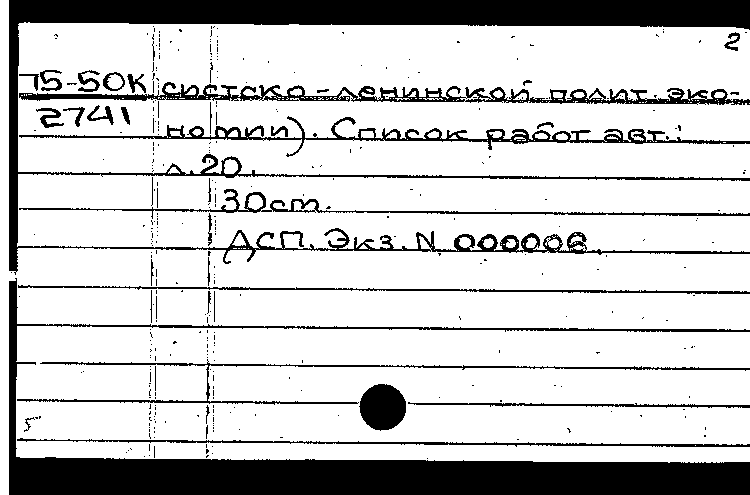 2
75-50К систско-ленинской полит. эко-
2741
номии). Список работ авт.:
л.20.
30см.
ДСП. Экз. N 000006.
5